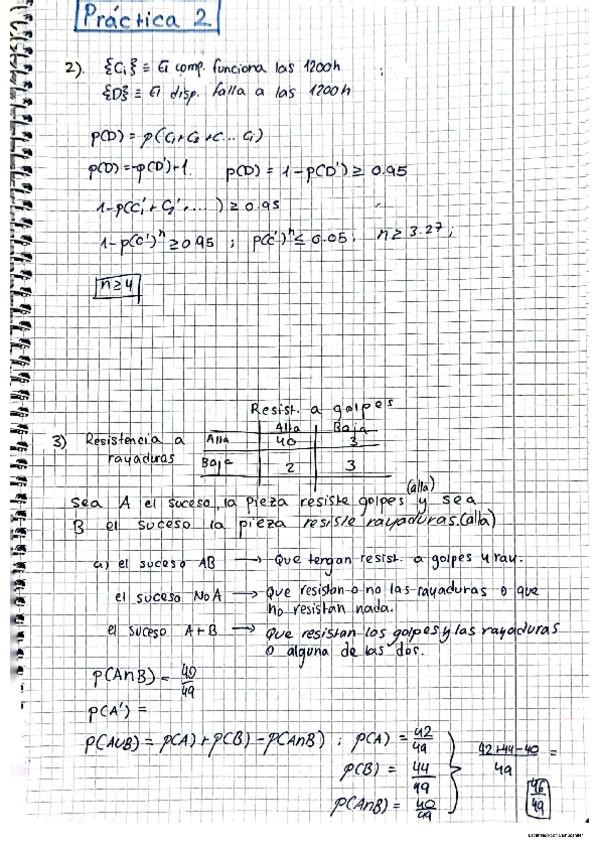 Práctica 2
2). {Ci} ≡ El comp. funciona las 1200h
{D} ≡ El disp. falla a las 1200h
p(D) = p(C₁+C₂+C... Ci)
p(D)=-p(D')+1. p(D) = 1-p(D') ≥ 0.95
1-p(C₁'+C₂'+....) ≥ 0.95
1-p(C')ⁿ ≥ 0.95 ; p(C')ⁿ ≤ 0.05; n ≥ 3.27;
n ≥ 4
Resist. a golpes
Alta Baja
3) Resistencia a Alta 40 3
rayaduras Baja 2 3
(alta)
sea A el suceso, la pieza resiste golpes y sea
B el suceso la pieza resiste rayaduras.(alta)
a) el suceso AB → Que tengan resist. a golpes y ray.
el suceso No A → Que resistan o no las rayaduras o que
no resistan nada.
el suceso A+B → Que resistan los golpes y las rayaduras
o alguna de las dos.
p(A∩B) = 40/49
p(A') =
p(A∪B) = p(A)+p(B)-p(A∩B) ; p(A) = 42/49
p(B) = 44/49
p(A∩B) = 40/49
42+44-40/49 =
46/49